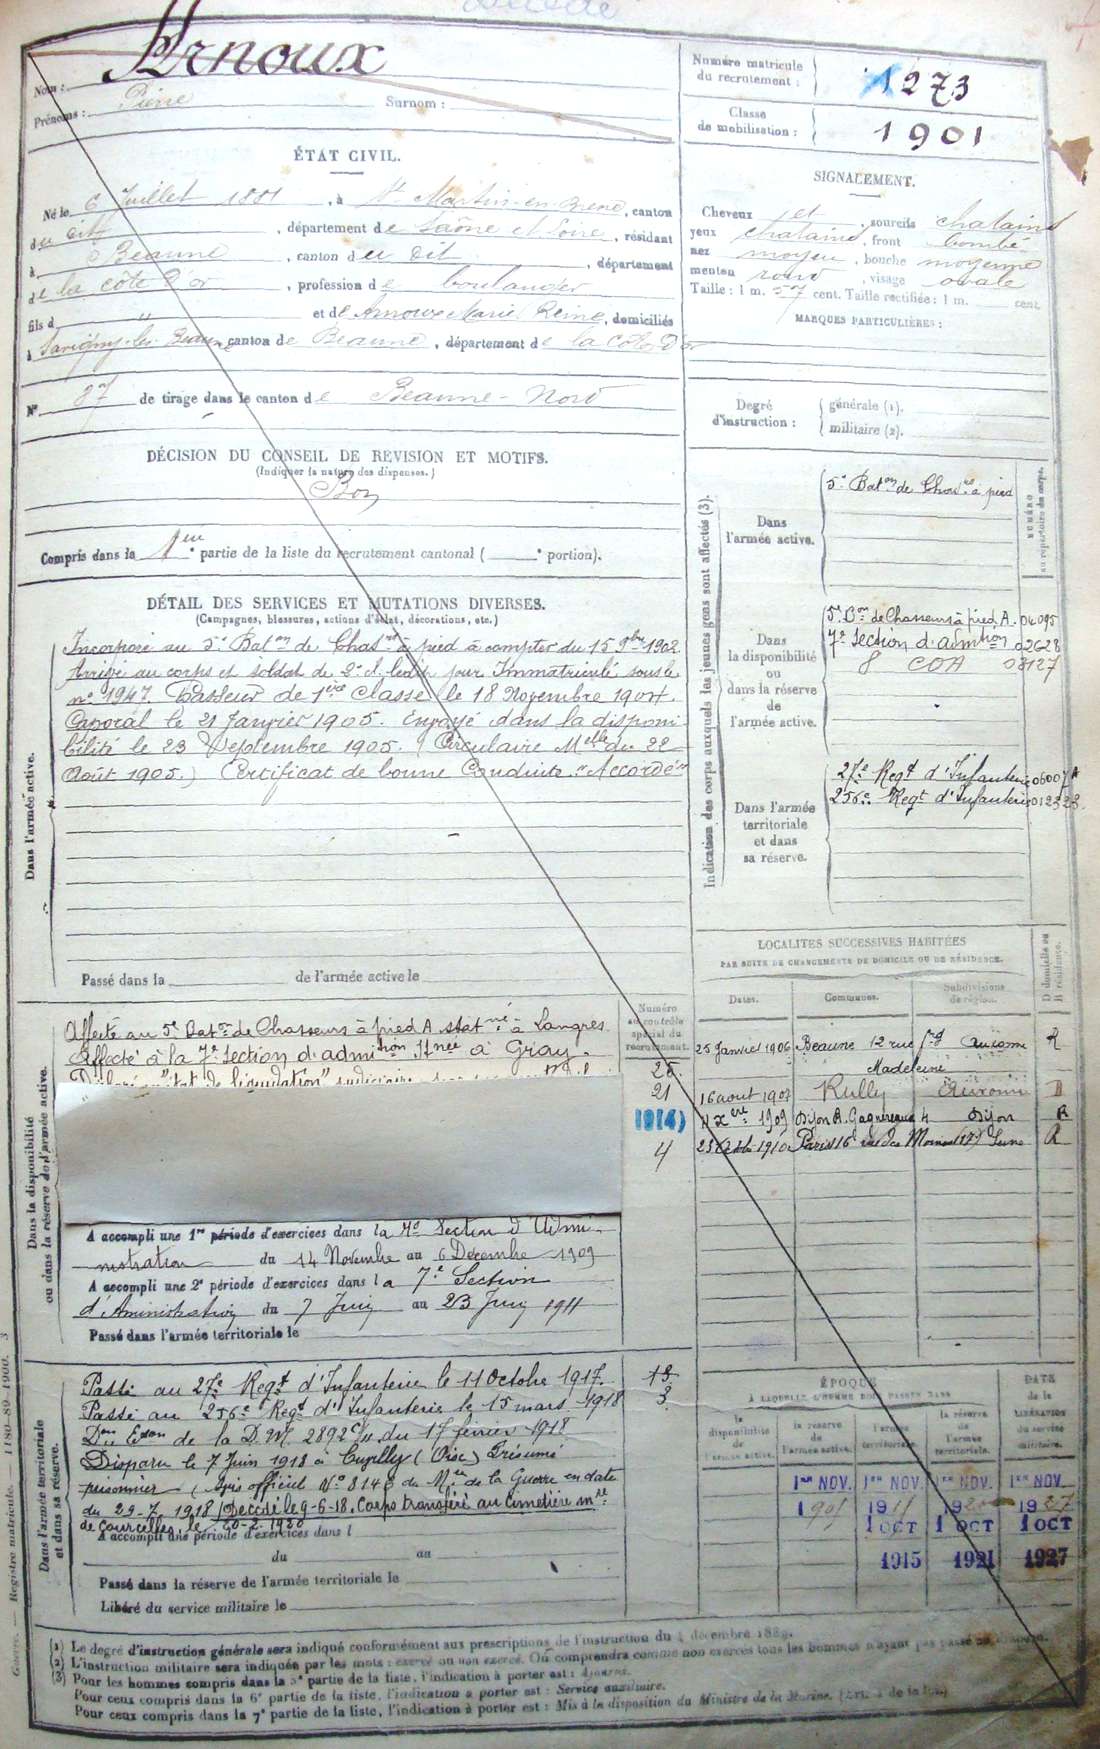 Décédé
Nom : Arnoux
Prénoms : Pierre Surnom :
Numéro matricule du recrutement : 1273
Classe de mobilisation : 1901
ÉTAT CIVIL.
Né le 6 Juillet 1881, à St Martin-en-Bresse, canton
du dit, département de Saône et Loire, résidant
à Beaune, canton du dit, département
de la côte d'or, profession de boulanger
fils d " et de Arnoux Marie Reine, domiciliés
à Savigny-les-Beaune canton de Beaune, département de la Côte d'or
N° 87 de tirage dans le canton de Beaune-Nord
SIGNALEMENT.
Cheveux et sourcils chatains
yeux chatains, front bombé
nez moyen, bouche moyenne
menton rond, visage ovale
Taille : 1 m. 57 cent. Taille rectifiée : 1 m. cent.
MARQUES PARTICULIÈRES :
Degré d'instruction : générale (1).
militaire (2).
DÉCISION DU CONSEIL DE RÉVISION ET MOTIFS.
(Indiquer la nature des dispenses.)
Bon
Compris dans la 1ere partie de la liste du recrutement cantonal ( e portion).
DÉTAIL DES SERVICES ET MUTATIONS DIVERSES.
(Campagnes, blessures, actions d'éclat, décorations, etc.)
Dans l'armée active.
Incorporé au 5e Baton de Chasrs à pied à compter du 15 9bre 1902.
Arrivé au corps et soldat de 2e cl. ledit jour Immatriculé sous le
n° 1947. Chasseur de 1ère classe le 18 Novembre 1904.
Caporal le 21 Janvier 1905. Envoyé dans la disponi-
bilité le 23 Septembre 1905. (Circulaire Mlle du 22
Août 1905.) Certificat de bonne Conduite "Accordé"
Passé dans la de l'armée active le
Indication des corps auxquels les jeunes gens sont affectés (3).
NUMÉRO au répertoire du corps.
Dans l'armée active.
5e Baton de Chasrs à pied
Dans la disponibilité ou dans la réserve de l'armée active.
5e Bon de Chasseurs à pied A. 04095
7e Section d'admtion 02628
8 COA 03127
Dans l'armée territoriale et dans sa réserve.
27e Regt d'Infanterie 06007 A
256e Regt d'Infanterie 012323
LOCALITÉS SUCCESSIVES HABITÉES
PAR SUITE DE CHANGEMENTS DE DOMICILE OU DE RÉSIDENCE.
Dates. Communes. Subdivisions de région. D domicile ou R résidence.
25 Janvier 1906 Beaune 12 rue fg Madeleine Auxonne R
16 août 1907 Rully Auxonne D
11 Xbre 1909 Dijon R. Gagnereaux 4 Dijon R
23 Octob 1910 Paris 16 rue des Moines (17) Seine R
Dans la disponibilité ou dans la réserve de l'armée active.
Numéro au contrôle spécial du recrutement.
Affecté au 5e Baton de Chasseurs à pied A statné à Langres
Affecté à la 7e Section d'admition Stnée à Gray.
25.
21
1914)
4
A accompli une 1re période d'exercices dans la 7e Section d'Admi-
nistration du 14 Novembre au 6 Decembre 1909
A accompli une 2e période d'exercices dans la 7e Section
d'Aministration du 7 Juin au 23 Juin 1911
Passé dans l'armée territoriale le
Dans l'armée territoriale et dans sa réserve.
Passé au 27e Régt d'Infanterie le 11 Octobre 1917. 13.
Passé au 256e Régt d'Infanterie le 15 mars 1918 3
Don Eon de la D.M. 2892 du 17 février 1918
Disparu le 7 Juin 1918 à Cuvilly (Oise) Présumé
prisonnier (Avis officiel N° 8146 du Mre de la Guerre en date
du 29-7-1918) Décédé le 9-6-18. Corps transféré au cimetière mre
de Courcelles, le 20-2-1920
A accompli une période d'exercices dans l
du au
Passé dans la réserve de l'armée territoriale le
Libéré du service militaire le
ÉPOQUE
À LAQUELLE L'HOMME DOIT PASSER DANS
la disponibilité de l'armée active. la réserve de l'armée active. l'armée territoriale. la réserve de l'armée territoriale. DATE de la LIBÉRATION du service militaire.
1er NOV. 1er NOV. 1er NOV. 1er NOV.
1905 1915 1921 1927
1 OCT 1 OCT 1 OCT
1915 1921 1927
(1) Le degré d'instruction générale sera indiqué conformément aux prescriptions de l'instruction du 4 décembre 1889.
(2) L'instruction militaire sera indiquée par les mots : exercé ou non exercé. On comprendra comme non exercés tous les hommes n'ayant pas passé
(3) Pour les hommes compris dans la 5e partie de la liste, l'indication à porter est : Ajourné.
Pour ceux compris dans la 6e partie de la liste, l'indication à porter est : Service auxiliaire.
Pour ceux compris dans la 7e partie de la liste, l'indication à porter est : Mis à la disposition du Ministre de la Marine.
Guerre. — Registre matricule. — 1180-89-1900. 3